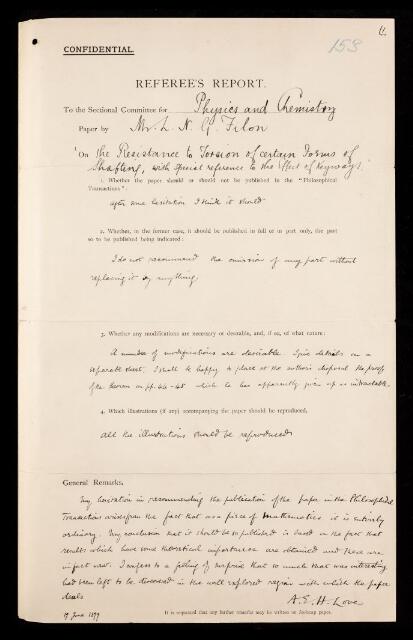 6.
158
CONFIDENTIAL.
REFEREE'S REPORT.
To the Sectional Committee for Physics and Chemistry
Paper by Mr. L. N. G. Filon
'On the Resistance to Torsion of certain Forms of
Shafting, with special reference to the Effect of Keyways'.
1. Whether the paper should or should not be published in the "Philosophical
Transactions":
after some hesitation I think it should
2. Whether, in the former case, it should be published in full or in part only, the part
so to be published being indicated:
I do not recommend the omission of any part without
replacing it by anything.
3. Whether any modifications are necessary or desirable, and, if so, of what nature:
A number of modifications are desirable. I give details on a
separate sheet. I shall be happy to place at the author's disposal the proof
of the theorem on pp. 44-45 which he has apparently given up as intractable.
4. Which illustrations (if any) accompanying the paper should be reproduced,
all the illustrations should be reproduced
General Remarks.
My hesitation in recommending the publication of the paper in the Philosophical
Transactions arises from the fact that as a piece of mathematics it is entirely
ordinary. My conclusion that it should be so published is based on the fact that
results which have some theoretical importance are obtained and these are
in fact new. I confess to a feeling of surprise that so much that was interesting
had been left to be discovered in the well explored region with which the paper
deals
A. E. H. Love
19 June 1899
It is requested that any further remarks may be written on foolscap paper.